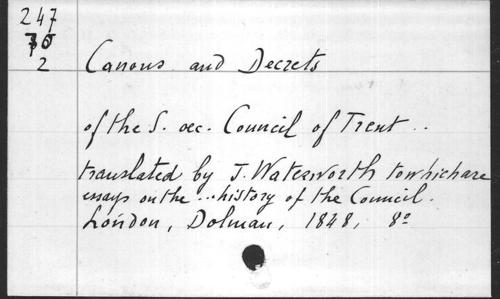 247
2
Canons and Decrets
of the S. oec. Council of Trent ..
translated by J. Waterworth to which are
essays on the ... history of the Council.
London, Dolman, 1848, 8º